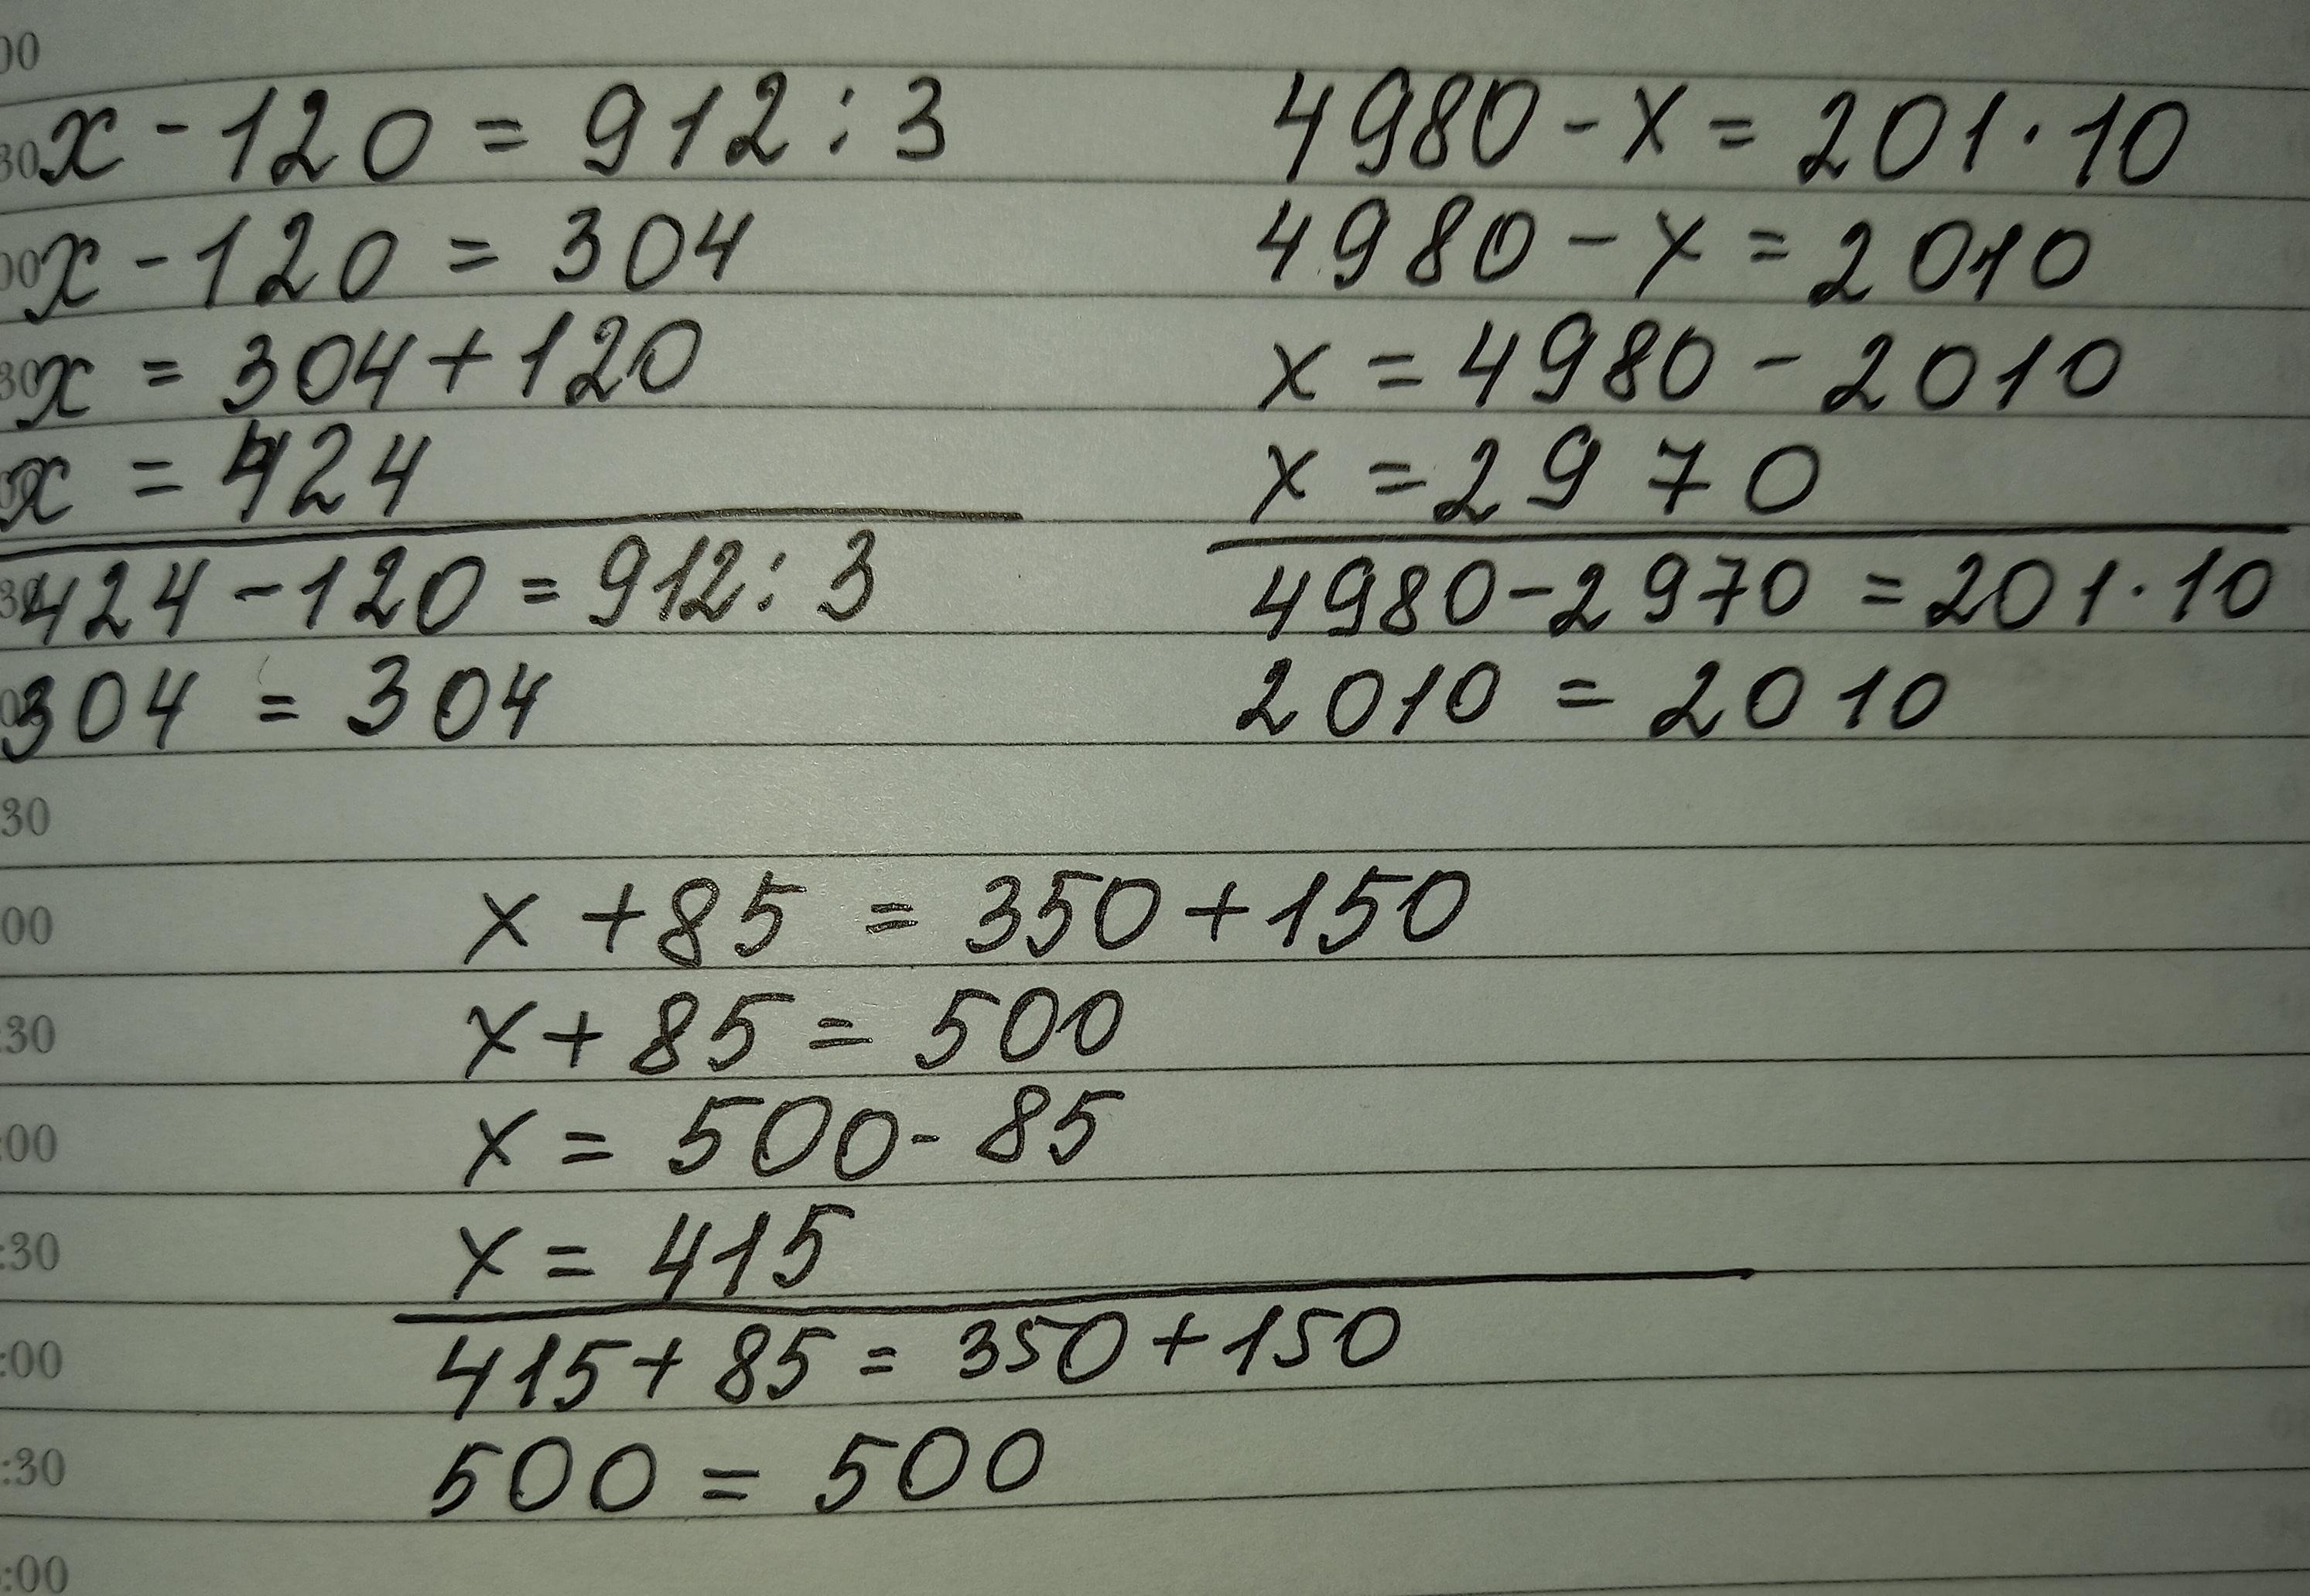 x - 120 = 912 : 3
x - 120 = 304
x = 304 + 120
x = 424
424 - 120 = 912 : 3
304 = 304
4980 - x = 201 · 10
4980 - x = 2010
x = 4980 - 2010
x = 2970
4980 - 2970 = 201 · 10
2010 = 2010
x + 85 = 350 + 150
x + 85 = 500
x = 500 - 85
x = 415
415 + 85 = 350 + 150
500 = 500
00
30
00
30
30
:30
:00
:30
:00
:30
:00
:30
:00